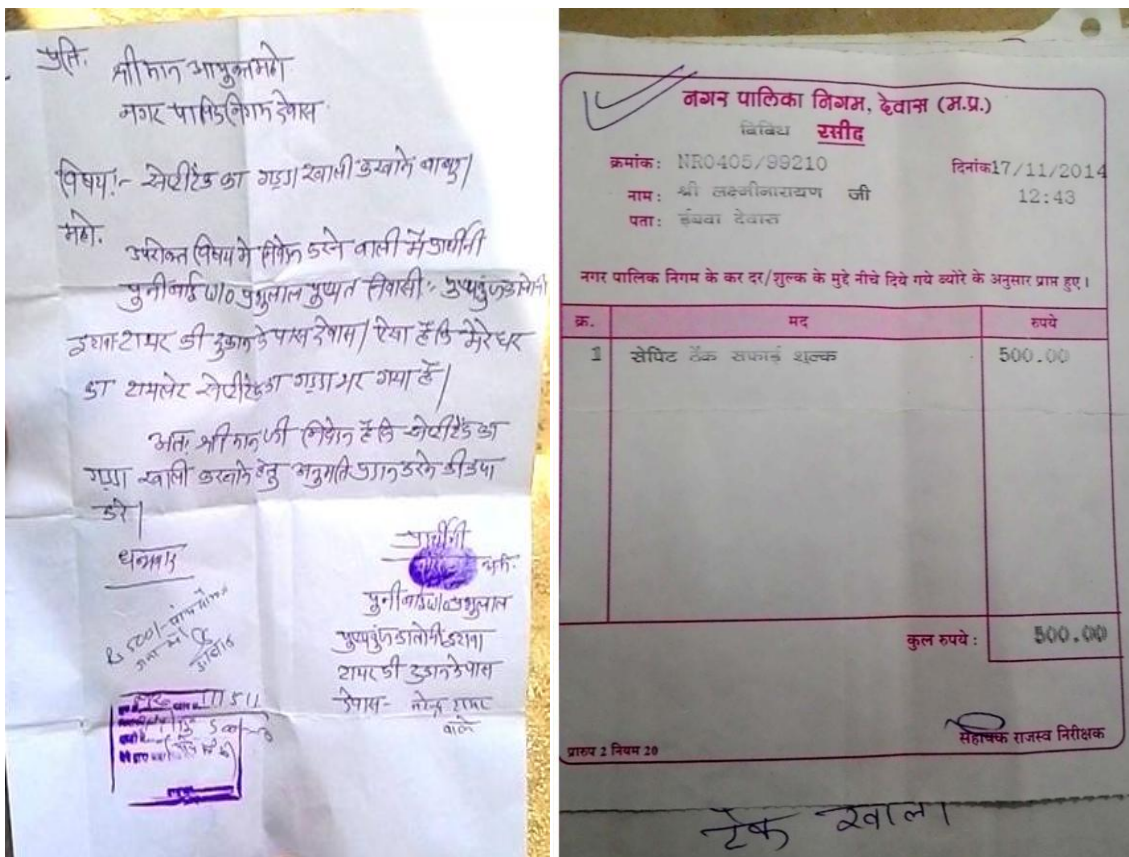 प्रति.
श्रीमान आयुक्त महो
नगर पालिक निगम देवास
विषय:- सेप्टीटैंक का गड्डा खाली करवाने बाबत्।
महो.
उपरोक्त विषय मे निवेदन करने वाली में प्रार्थीनी
पुनीबाई w/o प्रभुलाल निवासी:- पुष्पकुंज कालोनी
इटावा टायर की दुकान के पास देवास। ऐसा है कि मेरे घर
का टायलेट सेप्टीटैंक का गड्डा भर गया है।
अतः श्रीमान जी निवेदन है कि सेप्टीटैंक का
गड्डा खाली करवाने हेतु अनुमति प्रदान करने की कृपा
करे।
धन्यवाद
प्रार्थीनी
पुनीबाई w/o प्रभुलाल
पुष्पकुंज कालोनी इटावा
टायर की दुकान के पास
देवास- नरेन्द्र टायर
वाले
Rs 500/-
नगर पालिका निगम, देवास (म.प्र.)
विविध रसीद
क्रमांक: NR0405/99210 दिनांक 17/11/2014
12:43
नाम: श्री लक्ष्मीनारायण जी
पता: इटावा देवास
नगर पालिक निगम के कर दर/शुल्क के मुद्दे नीचे दिये गये ब्योरे के अनुसार प्राप्त हुए।
क्र. मद रुपये
1 सेप्टि टैंक सफाई शुल्क 500.00
कुल रुपये: 500.00
सहायक राजस्व निरीक्षक
प्रारुप 2 नियम 20
टेंक खाली